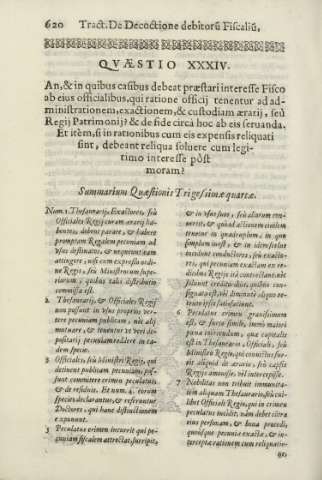 620 Tract. De Decoctione debitorũ Fiscaliũ,
QVÆSTIO XXXIV.
An, & in quibus casibus debeat præstari interesse Fisco
ab eius officialibus, qui ratione officij tenentur ad ad-
ministrationem, exactionem, & custodiam ærarij, seù
Regij Patrimonij? & de fide circa hoc ab eis seruanda.
Et itèm, si in rationibus cum eis expensis reliquati
sint, debeant reliqua soluere cum legi-
timo interesse pòst
moram?
Summarium Quæstionis Trigesimæquartæ.
Num. 1. Thesaurarij, Exactores, seù
Officiales Regij curam ærarij ha-
bentes, debent parare, & habere
promptam Regalem pecuniam ad
vsus destinatos, & nequeunt eam
attingere, nisi cum expresso ordi-
ne Regis, seù Ministrorum supe-
riorum, quibus talis distributio
commissa est.
2. Thesaurarij, & Officiales Regij
non possunt in vsus proprios ver-
tere pecuniam publicam, nec alij
mutuare, & tenentur vi veri de-
positarij pecuniam reddere in ea-
dem specie.
3. Officiales, seù Ministri Regij, qui
detinent publicam pecuniam, pos-
sunt committere crimen peculatus,
& de residuis. Et num. 4. eorum
species declarantur, & referuntur
Doctores, qui hanc distinctionem
exponunt.
5 Peculatus crimen incurrit qui pe-
cuniam fiscalem attrectat, surripit,
& in vsus suos, seù aliorum con-
uertit, & quòad actionem ciuilem
tenetur in quadruplum, in que
simplum inest, & in idem scelus
incidunt conductores, seù exacto-
res, qui pecuniam exactam ex re-
ditibus Regijs ità contractant, nec
soluunt creditoribus, quibus con-
signata est, vel diminutè absque in-
tegra ipsis satisfactione.
6 Peculatus crimen grauissimum
est, & furto simile, immò maiori
pœna coercendum, quæ capitalis
est in Thesaurarios, Officiali, seù
Ministro Regio, qui committit fur-
tis aliquid de ærario, seù capsis
Regijs amouisse, vel interceptisse.
7 Nobilitas non tribuit immunita-
tem aliquam Thesaurario, seù cui-
libet Officiali Regio, qui in crimen
peculatus incidit, nàm debet citra
eius personam, & bona procedi,
quousque pecunia exacta, & in-
tercepta cum reptæ rationatis-
eo